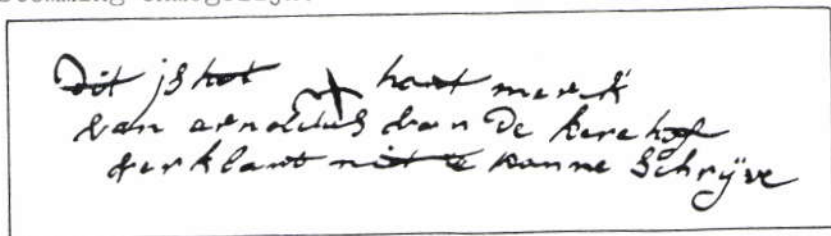 Dit is het hant merk
van arnoldus van De kerchof
verklart nit te konne schrijve